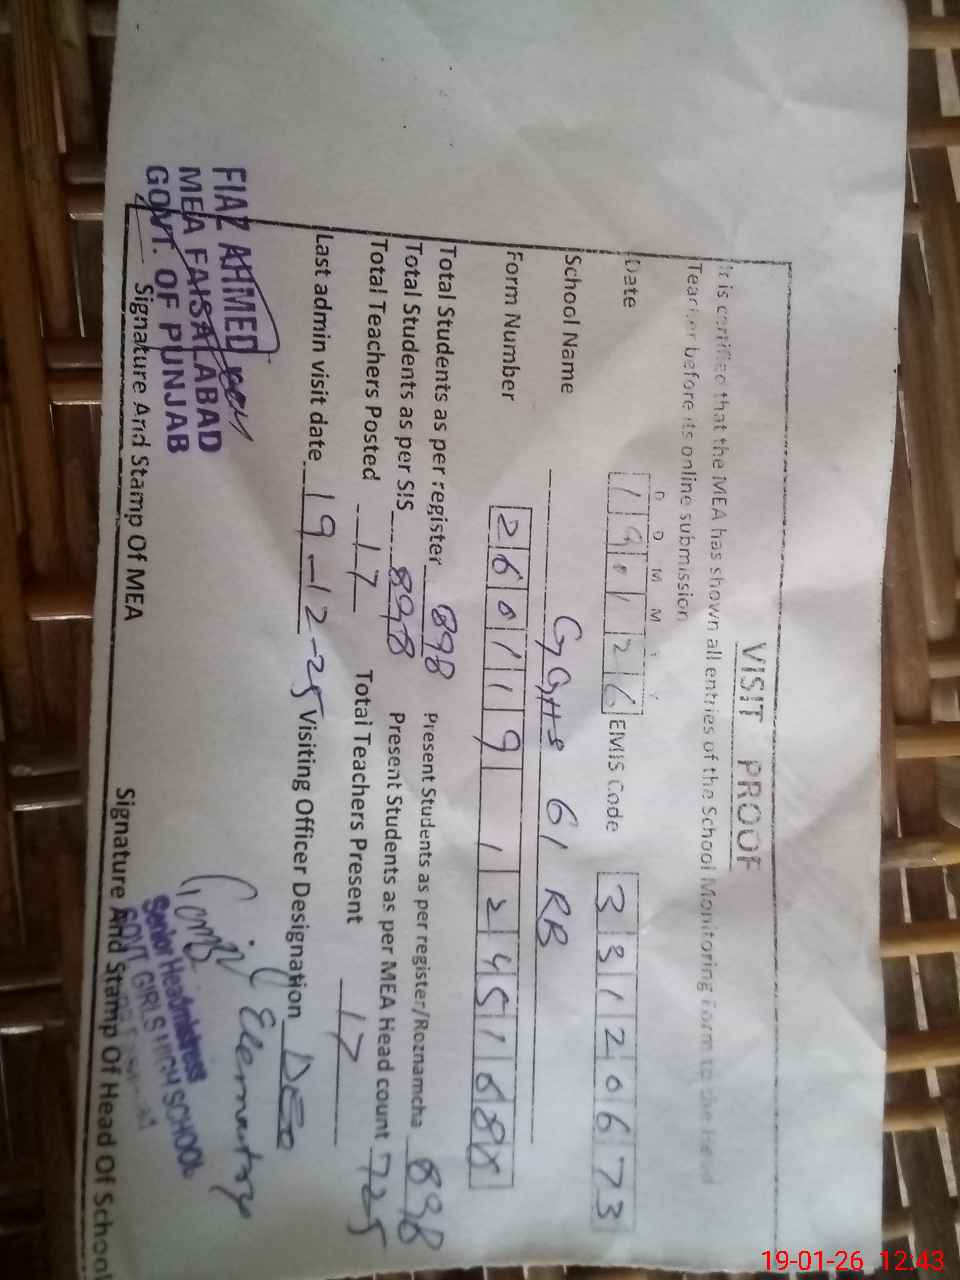 VISIT PROOF
It is certified that the MEA has shown all entries of the School Monitoring Form to the Head
Teacher before its online submission
D D M M Y Y
Date 190126 EMIS Code 33120673
School Name GGHS 61 RB
Form Number 260119 1245
Total Students as per register 898 Present Students as per register/Roznamcha 898
Total Students as per SIS 898 Present Students as per MEA Head count 725
Total Teachers Posted 17 Total Teachers Present 17
Last admin visit date 19-12-25 Visiting Officer Designation DEO
Elementary
FIAZ AHMED
MEA FAISALABAD
GOVT. OF PUNJAB
Senior Headmistress
GOVT GIRLS HIGH SCHOOL
Signature And Stamp Of MEA Signature And Stamp Of Head Of School
19-01-26 12:43